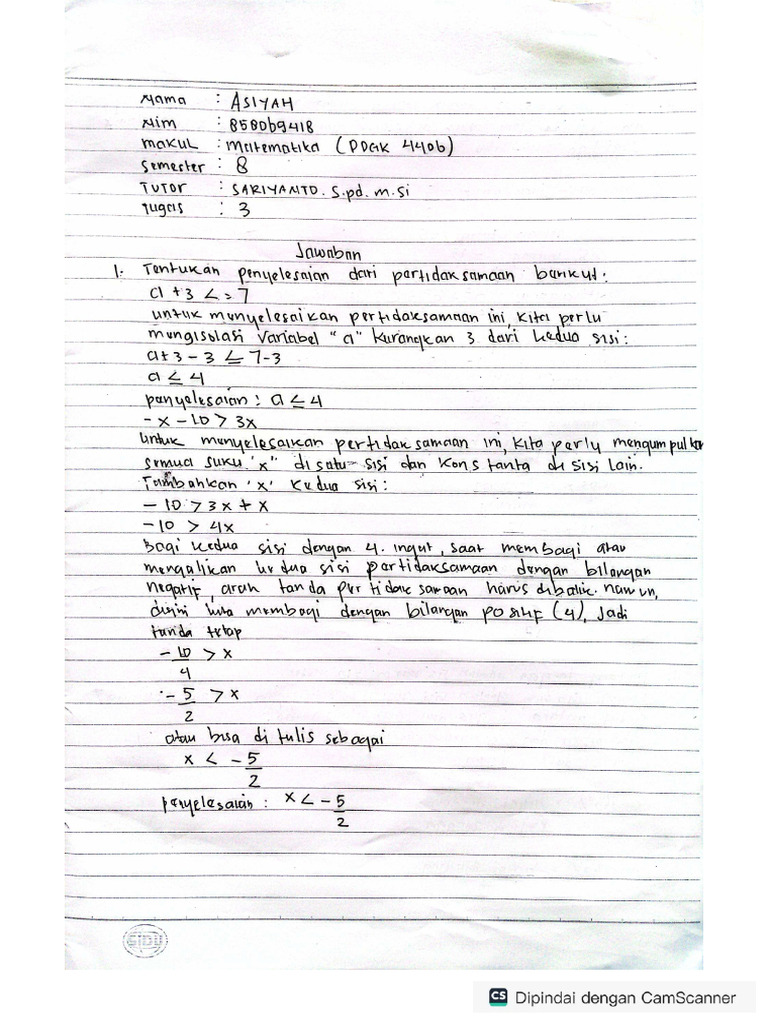 Nama : ASIYAH
Nim : 858069418
Makul : Matematika (PDGK 4406)
Semester : 8
TUTOR : SARIYANTO. S.pd. m.si
Tugas : 3
Jawaban
1. Tentukan penyelesaian dari pertidaksamaan berikut:
a + 3 <= 7
untuk menyelesaikan pertidaksamaan ini, kita perlu
mengisolasi variabel "a" kurangkan 3 dari kedua sisi:
a + 3 - 3 ≤ 7-3
a ≤ 4
penyelesaian : a ≤ 4
- x - 10 > 3x
Untuk menyelesaikan pertidaksamaan ini, kita perlu mengumpulkan
semua suku "x" di satu sisi dan konstanta di sisi lain.
Tambahkan 'x' kedua sisi :
- 10 > 3x + x
-10 > 4x
Bagi kedua sisi dengan 4. ingat, saat membagi atau
mengalikan kedua sisi pertidaksamaan dengan bilangan
negatif, arah tanda pertidaksamaan harus dibalik. namun,
disini kita membagi dengan bilangan positif (4), Jadi
tanda tetap
- 10/4 > x
- 5/2 > x
atau bisa di tulis sebagai
x < - 5/2
penyelesaian : x < - 5/2
SIDU
CS Dipindai dengan CamScanner